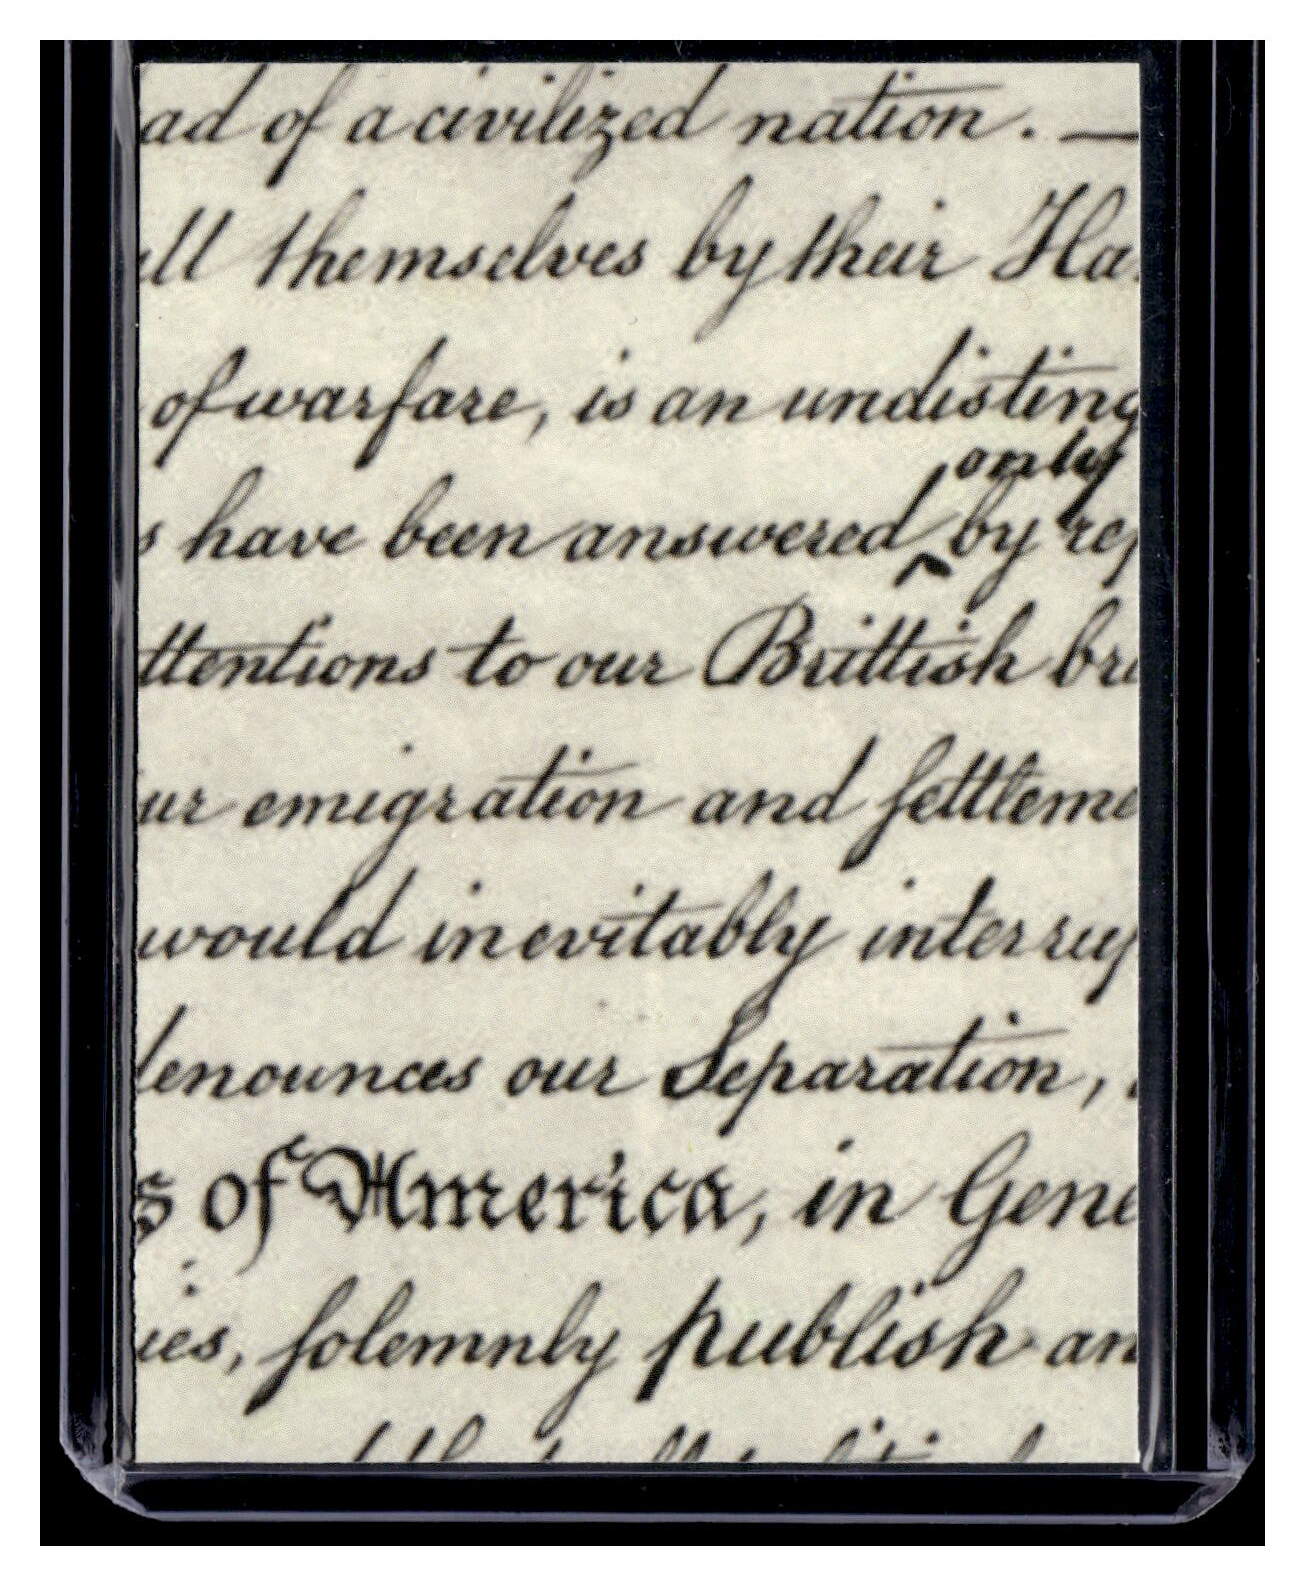 ad of a civilized nation. —
all themselves by their Ha
of warfare, is an undisting
only
s have been answered ‸ by rep
ttentions to our Brittish br
ur emigration and settleme
would inevitably interrup
denounces our Separation,
s of America, in Gene
ies, solemnly publish an